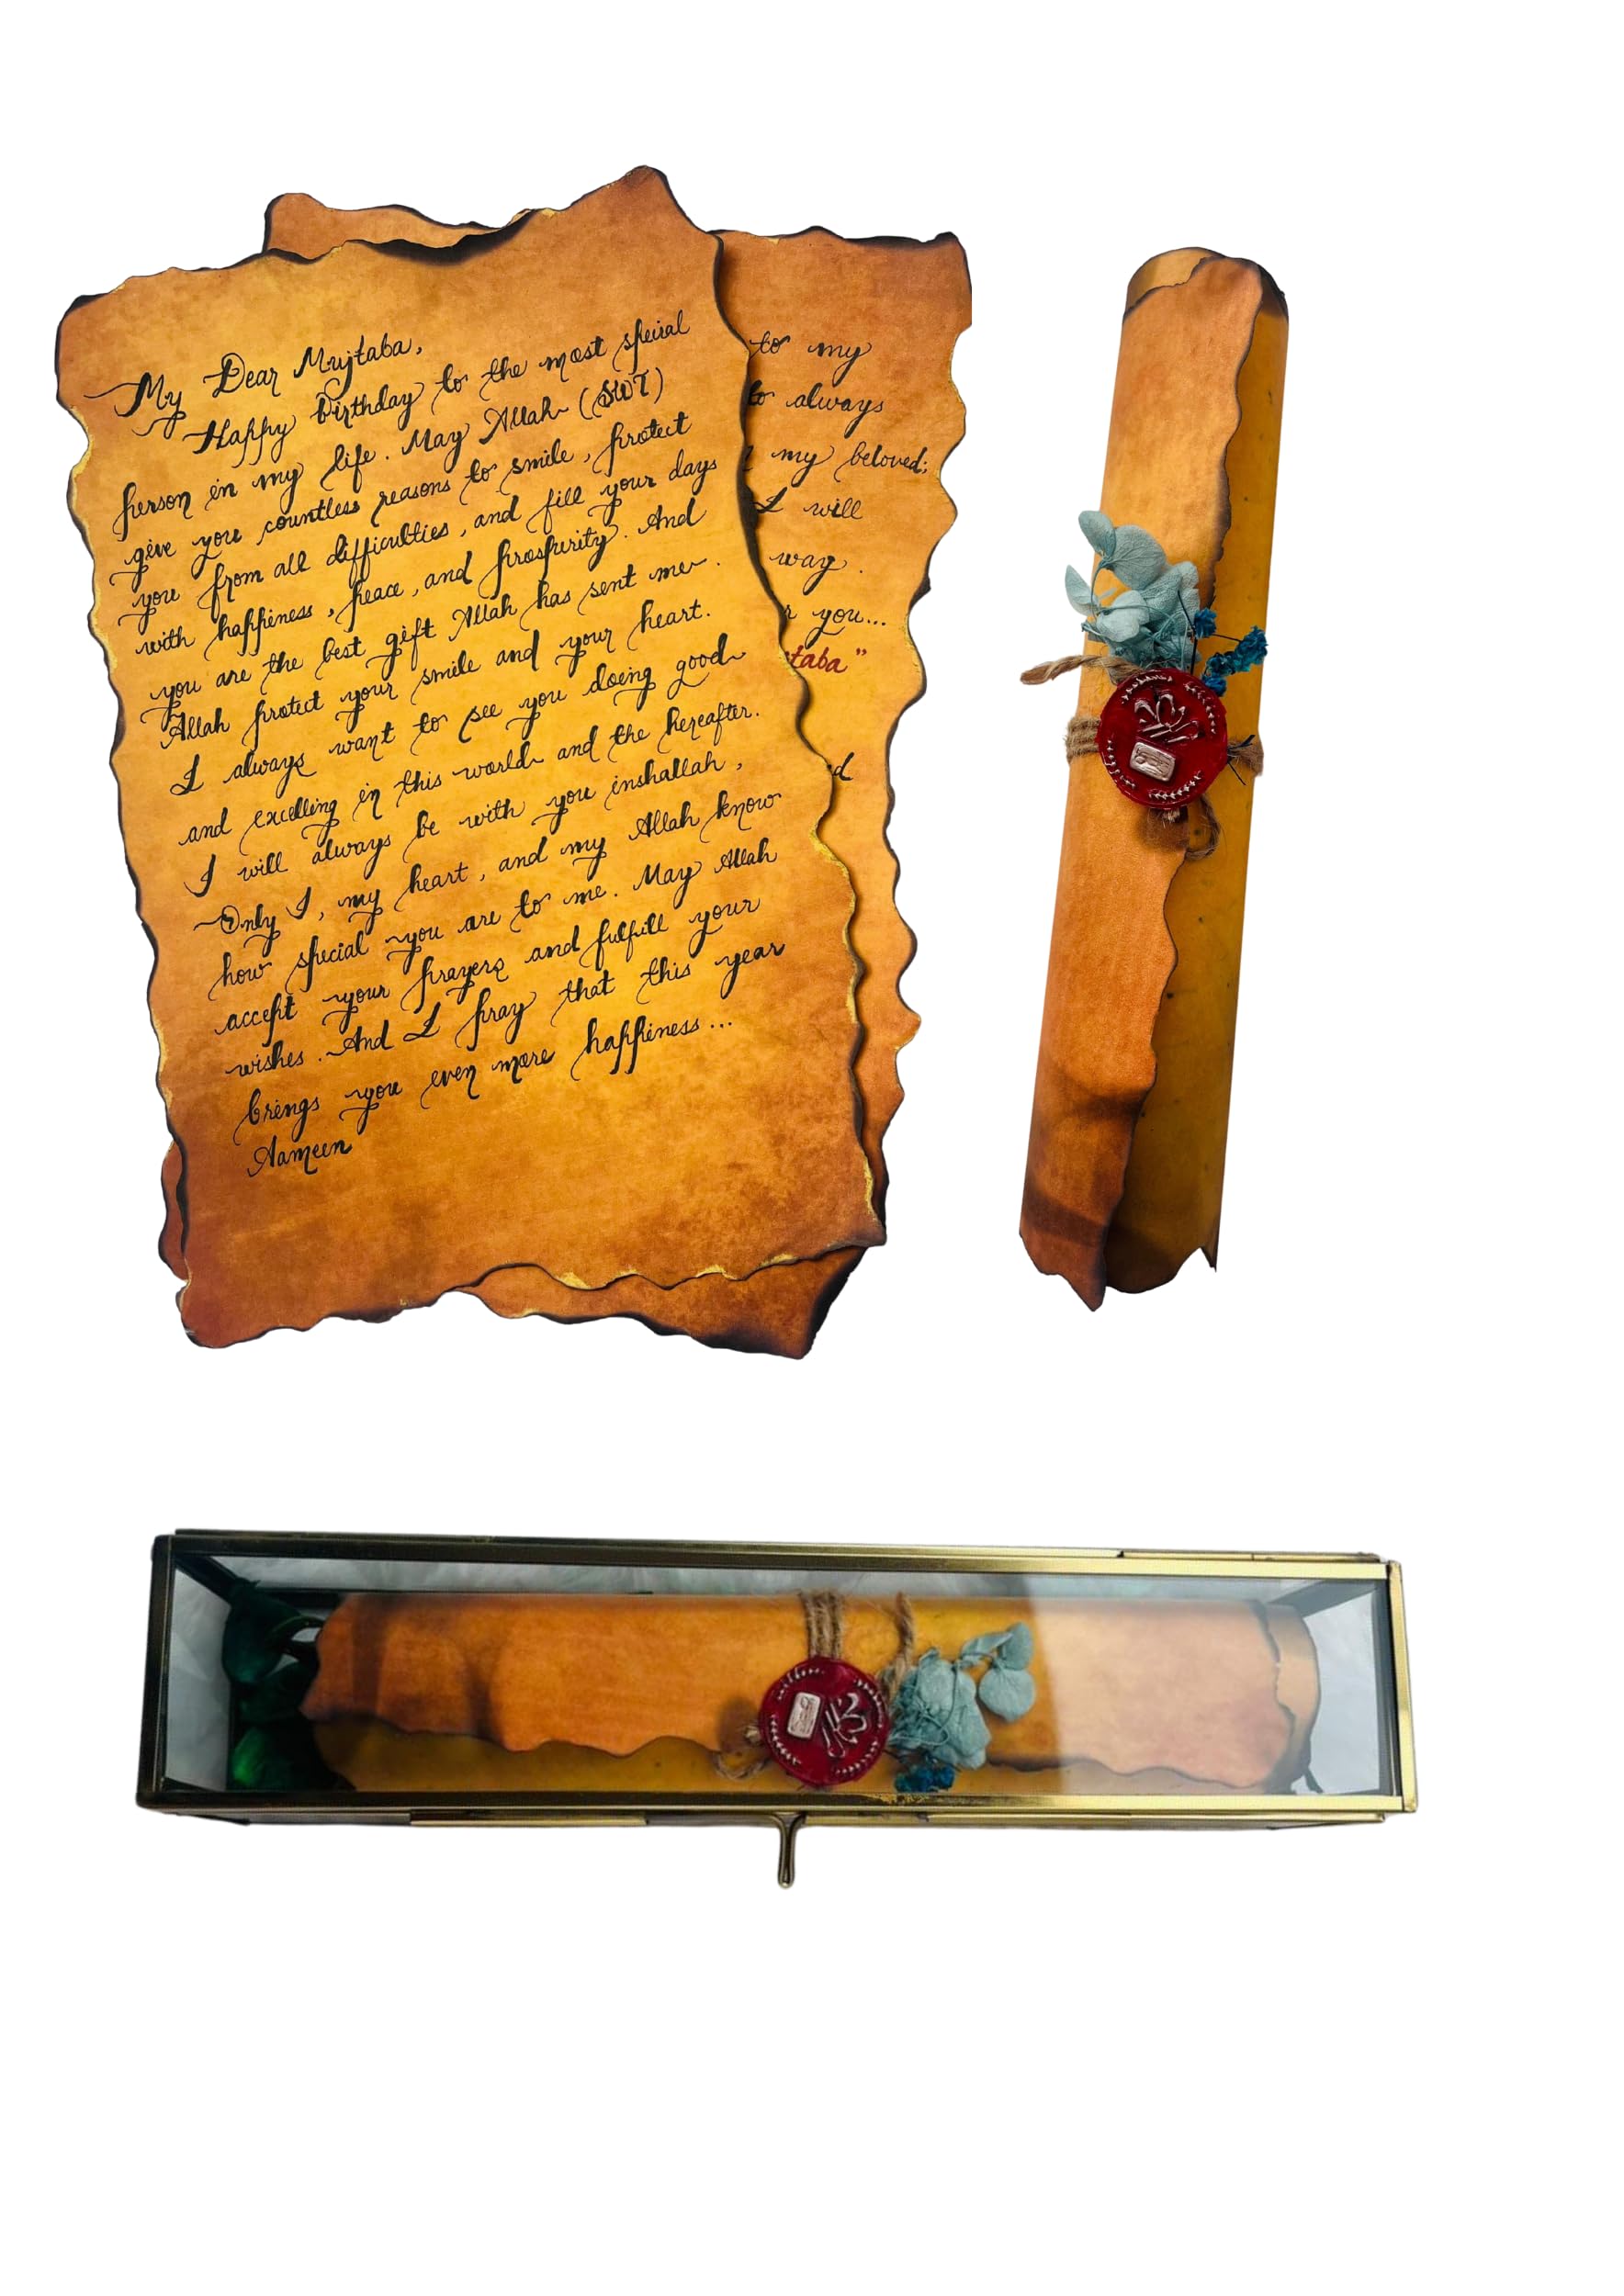 My Dear Mujtaba,
Happy birthday to the most special
person in my life. May Allah (SWT)
give you countless reasons to smile, protect
you from all difficulties, and fill your days
with happiness, peace, and prosperity. And
you are the best gift Allah has sent me.
Allah protect your smile and your heart.
I always want to see you doing good
and excelling in this world and the hereafter.
I will always be with you inshallah,
Only I, my heart, and my Allah know
how special you are to me. May Allah
accept your prayers and fulfill your
wishes. And I pray that this year
brings you even more happiness...
Aameen
to my
to always
my beloved;
I will
way.
r you...
taba"
d